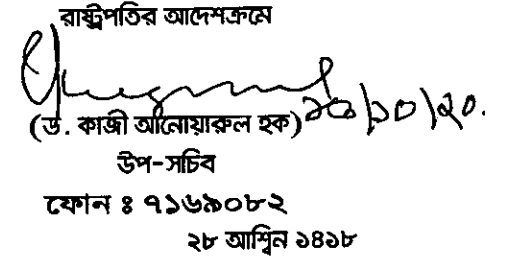 রাষ্ট্রপতির আদেশক্রমে
(ড. কাজী আনোয়ারুল হক)
উপ-সচিব
ফোন ঃ ৭১৬৯০৮২
২৮ আশ্বিন ১৪১৮